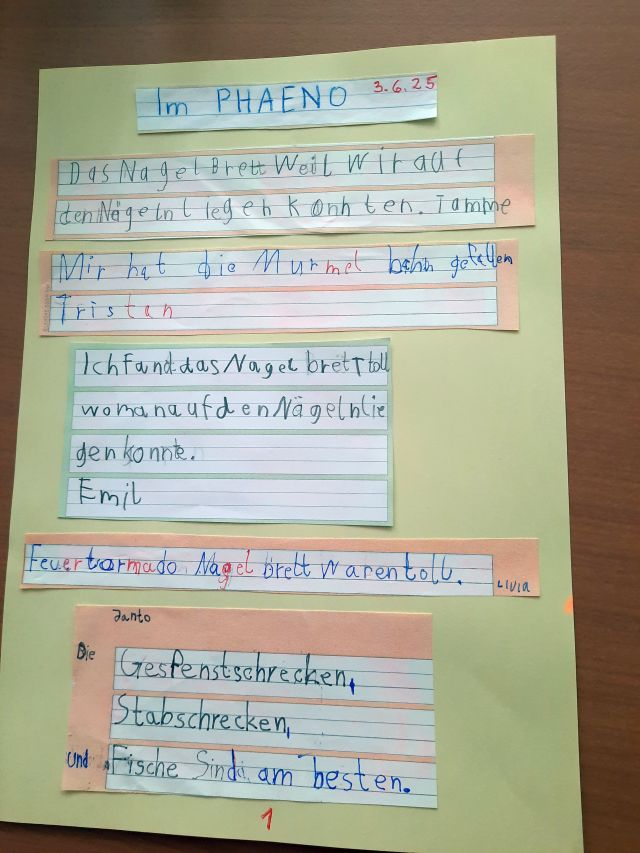 Im PHAENO 3.6.25
Das Nagel Brett Weil wir auf
den Nägeln l iegen konnten. Tamme
Mir hat die Murmel bahn gefallen
Tristan
Ich fand das Nagel brett toll
wo man auf den Nägeln lie
gen konnte.
Emil
Feuertormado Nagel brett waren toll.
LIVIA
Janto
Die Gespenstschrecken,
Stabschrecken,
und Fische Sind am besten.
1